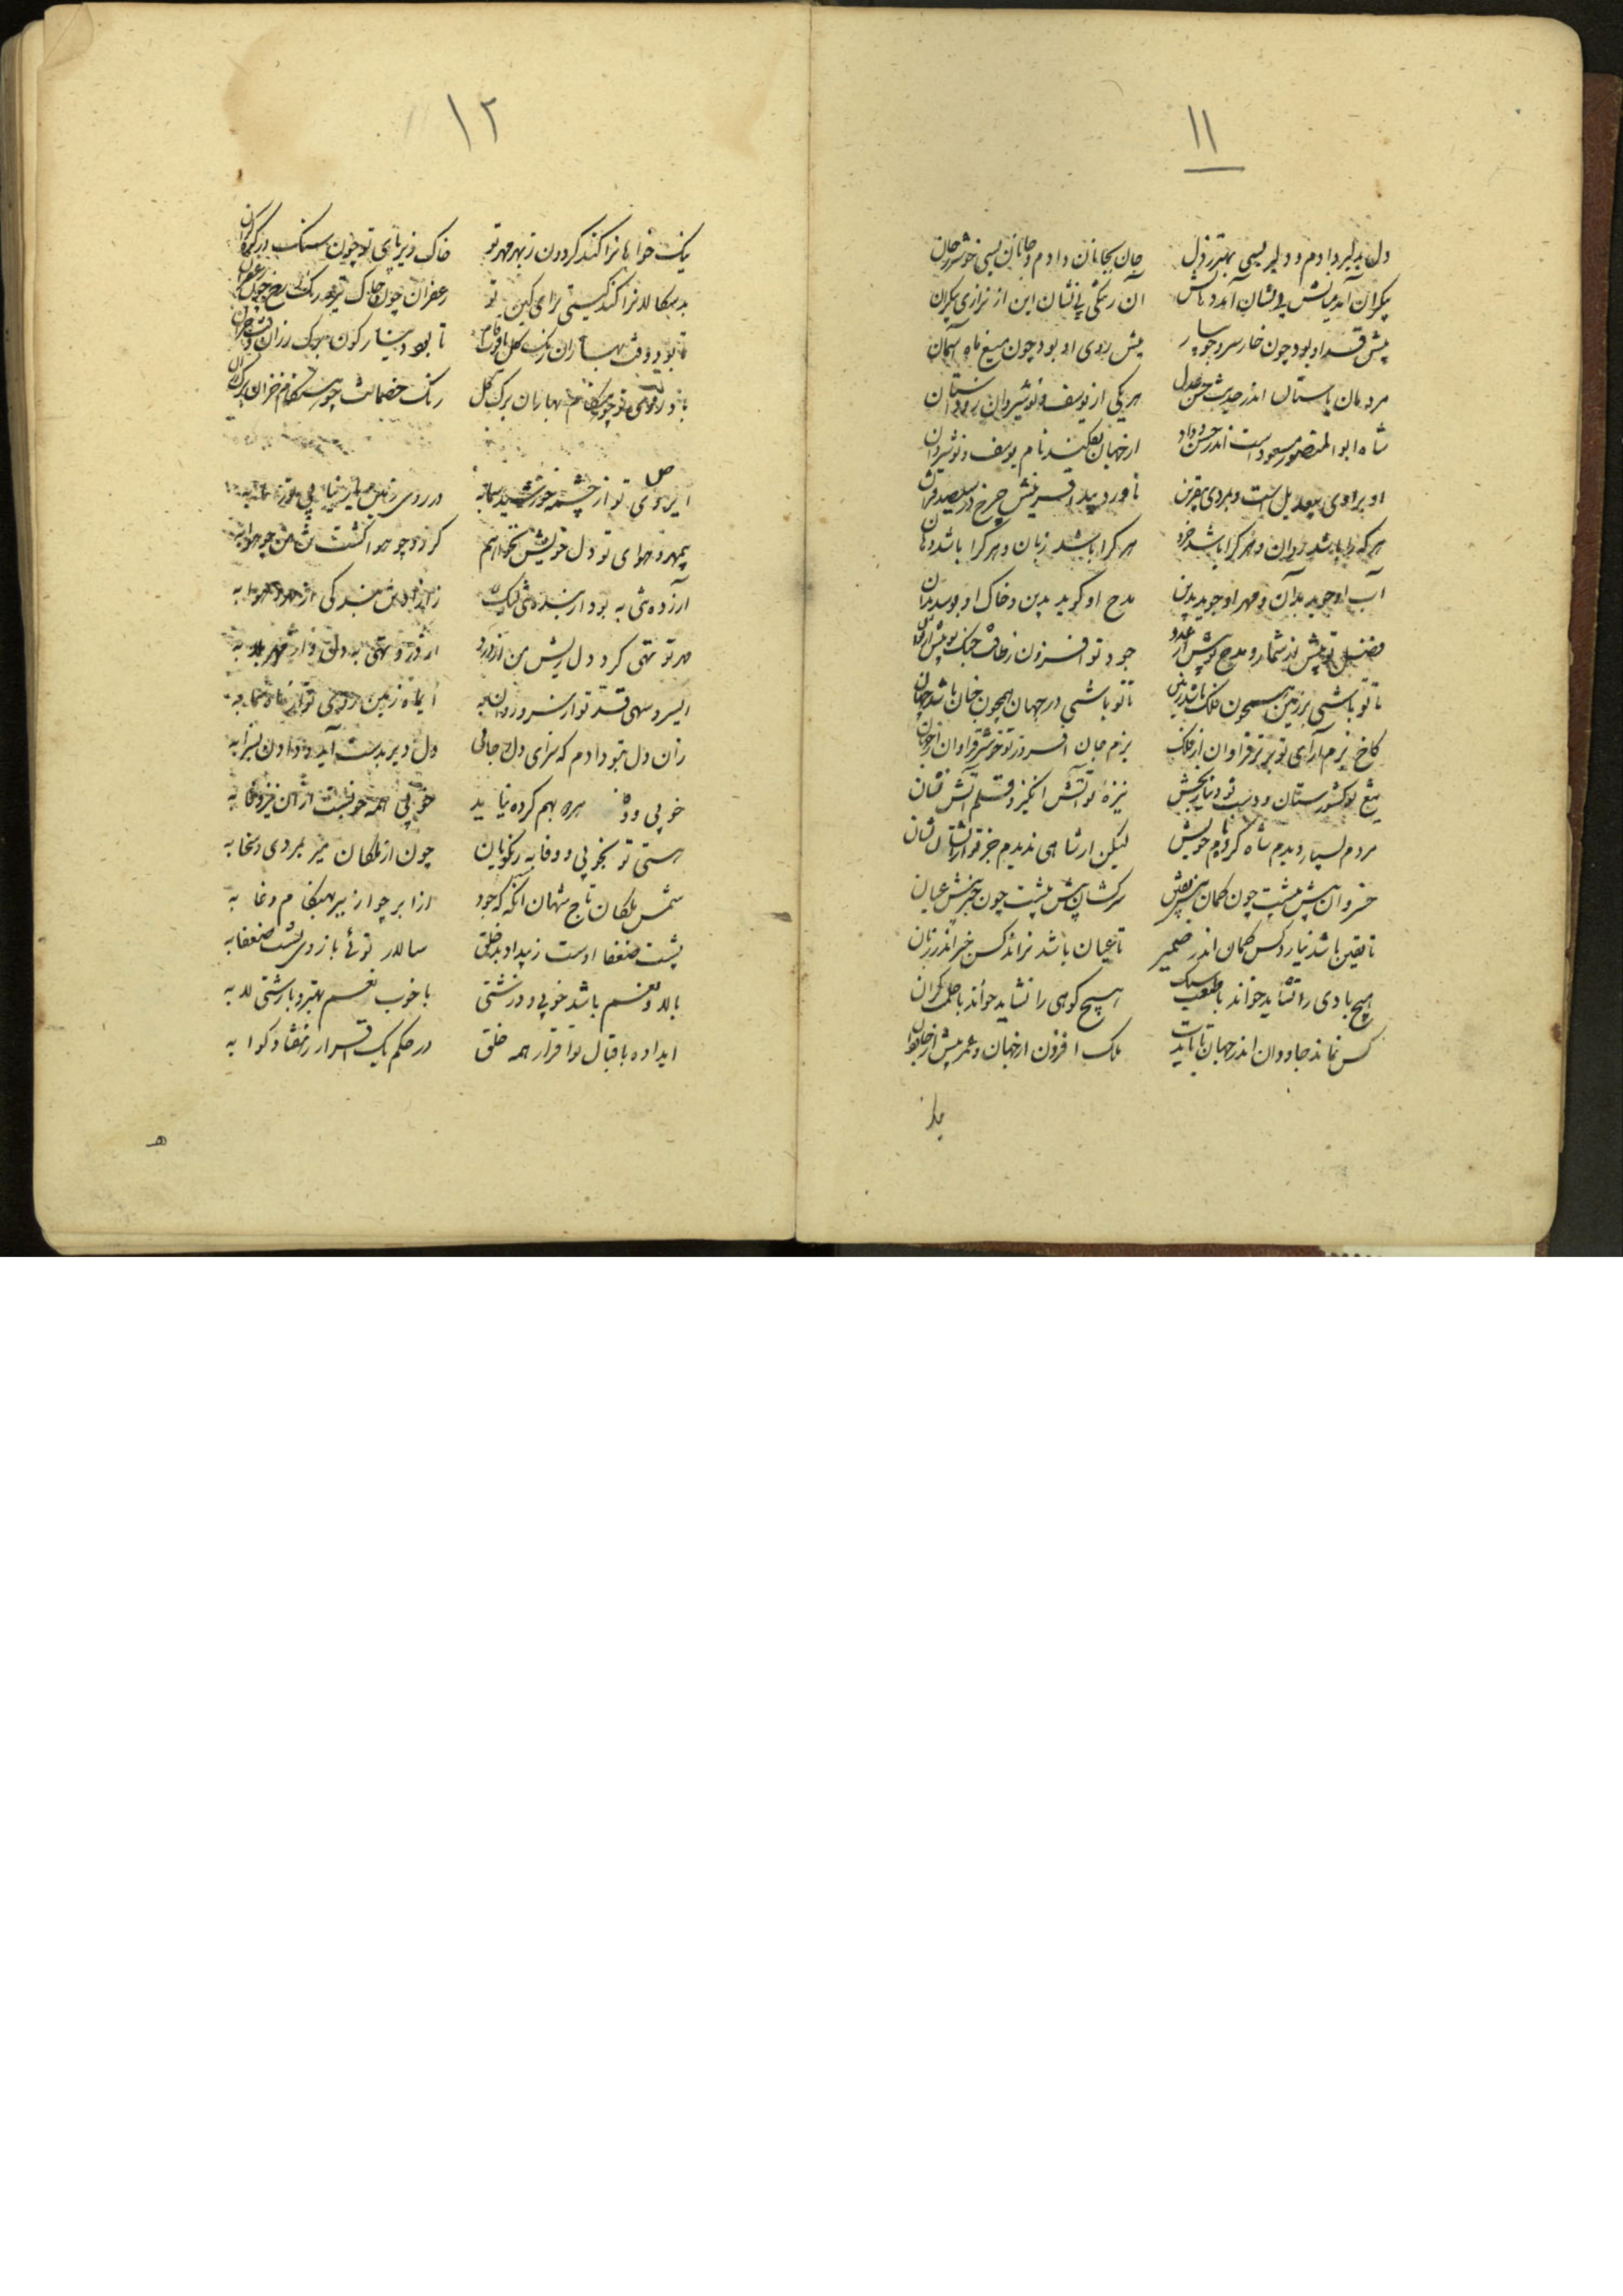 ۱۱
دل بدلبر دادم و دلبر بسی بهتر ز دل جان بجانان دادم و جانان بسی خوشتر ز جان
بیکران آمد میانش بی نشان آمد دهانش آن ز تنگی بی نشان این از نزاری بیکران
پیش قد او بود چون خار سرو جویبار پیش روی او بود چون میغ ماه آسمان
مردمان باستان اندر حدیث حسن و عدل هر یکی از یوسف و نوشیروان داستان
شاه ابوالمنصور مسعود است اندر حسن و داد از جهان بفکند نام یوسف و نوشیروان
او برادی بیعدیل است و بمردی بیقرین ناورد چرخ در سیصد قران
هر که را باشد روان و هر کرا باشد خرد هر کرا باشد زبان و هر کرا باشد دهان
آب او جوید بدان و مهر او جوید بدین مدح او گوید بدین و خاک او بوسد بدان
فضل تو بیش از شمار و مدح تو بیش از عدد جود تو افزون ز طاقت جنگ تو بیش از توان
تا تو باشی بر زمین همچون فلک باشد زمین تا تو باشی در جهان همچون جنان باشد جهان
کاخ بزم آرای تو برتر فراوان از فلک بزم جان افروز تو خوشتر فراوان از جنان
تیغ تو کشورستان و دست تو دینار بخش نیزه تو آتش انگیز و قلم آتش فشان
مردم بسیار دیدم شاه کرده نام خویش لیکن از شاهی ندیدم جز تو از ایشان نشان
خسروان پیش تو چون گمان پیش یقین سرکشان پیش تو چون خبر پیش عیان
تا یقین باشد نیارد کس گمان اندر ضمیر تا عیان باشد نراند کس خبر اندر زبان
هیچ بادی را نشاید خواند با طبعت سبک هیچ کوهی را نشاید خواند با حلمت گران
کس نماند جاودان اندر جهان تا بایدت ملک افزون از جهان و عمر بیش از جاودان
۱۲
نیک خواهانرا کند گردون ز بهر مهر تو خاک زیر پای تو چون سنک در
بدسکالانرا کند گیتی ز رای کین تو زعفران چون خاک تیره رنگ رخ چون زعفران
تا بود وقت بهاران رنگ گل تا بود دینارگون برگ رزان وقت خزان
باد روی تو چو هنگام بهاران برگ گل رنگ خصمانت چو هنگام خزان برگ رزان
ای روی تو از چشمه خورشید سما به در روی زمین نیابی تو ز ما به
بیمهر و هوای تو دل خویش نخواهم گردد چو هوا گشت تن من چو هوا به
آزاده شی به بود از بنده شی لیک زآزاده شی بندگی از بهر هوا به
مهر تو تهی کرد دل ریش من از درد از درد تهی به دل و از مهر ملا به
ای سرو سهی قد تو از سرو روان به ای ماه زمین روی تو از ماه سما به
زان دل بتو دادم که سزای دل و جانی دل دیر بدست آید و دادن بسزا به
خوبی و وفا هر دو بهم کرده نیاید خوبی همه خوبست از آن نیز وفا به
هستی تو بخوبی و وفا به ز نکویان چون از ملکان میر بمردی و سخا به
شمس ملکان تاج شهان آنکه که جود از ابر چو از ببر بهنگام وغا به
پشت ضعفا اوست ز بیداد بد خلق سالار توئی بازوی پشت ضعفا به
بالا و نعم باشد خوبی و درشتی با خوب نعم بهتر و با زشتی لا به
ای داده باقبال تو اقرار همه خلق در حکم یک اقرار ز هفتاد گوا به